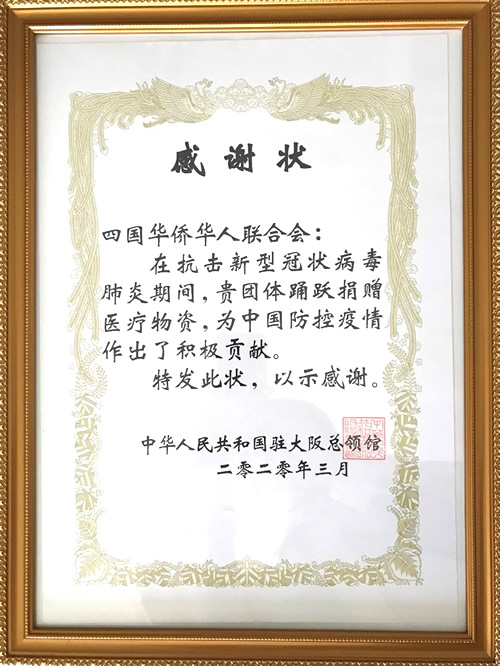 感谢状
四国华侨华人联合会：
在抗击新型冠状病毒
肺炎期间，贵团体踊跃捐赠
医疗物资，为中国防控疫情
作出了积极贡献。
特发此状，以示感谢。
中华人民共和国驻大阪总领馆
二零二零年三月